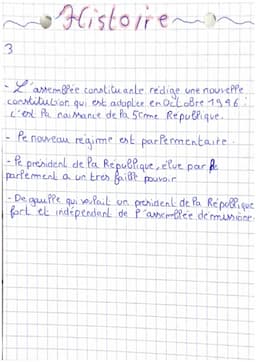 Histoire
3
- L'assemblée constituante rédige une nouvelle
constitution qui est adoptée en Octobre 1946 :
c'est la naissance de la 5ème République.
- le nouveau régime est parlermentaire.
- le président de la République, élue par le
parlement a un tres faible pouvoir
- De gaulle qui voulait un président de la République
fort et indépendant de l'assemblée démissione.